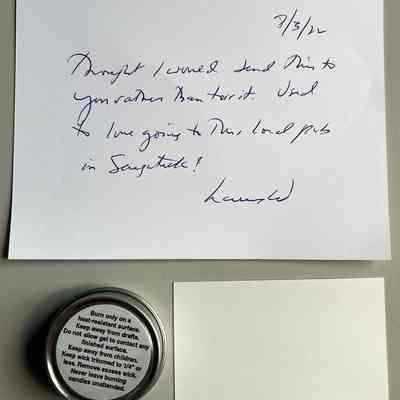 3/3/22
Thought I would send this to
you rather than toss it. Used
to love going to this local pub
in Saugatuck!
Burn only on a
heat-resistant surface.
Keep away from drafts.
Do not allow gel to contact any
finished surface.
Keep away from children.
Keep wick trimmed to 1/4" or
less. Remove excess wick.
Never leave burning
candles unattended.